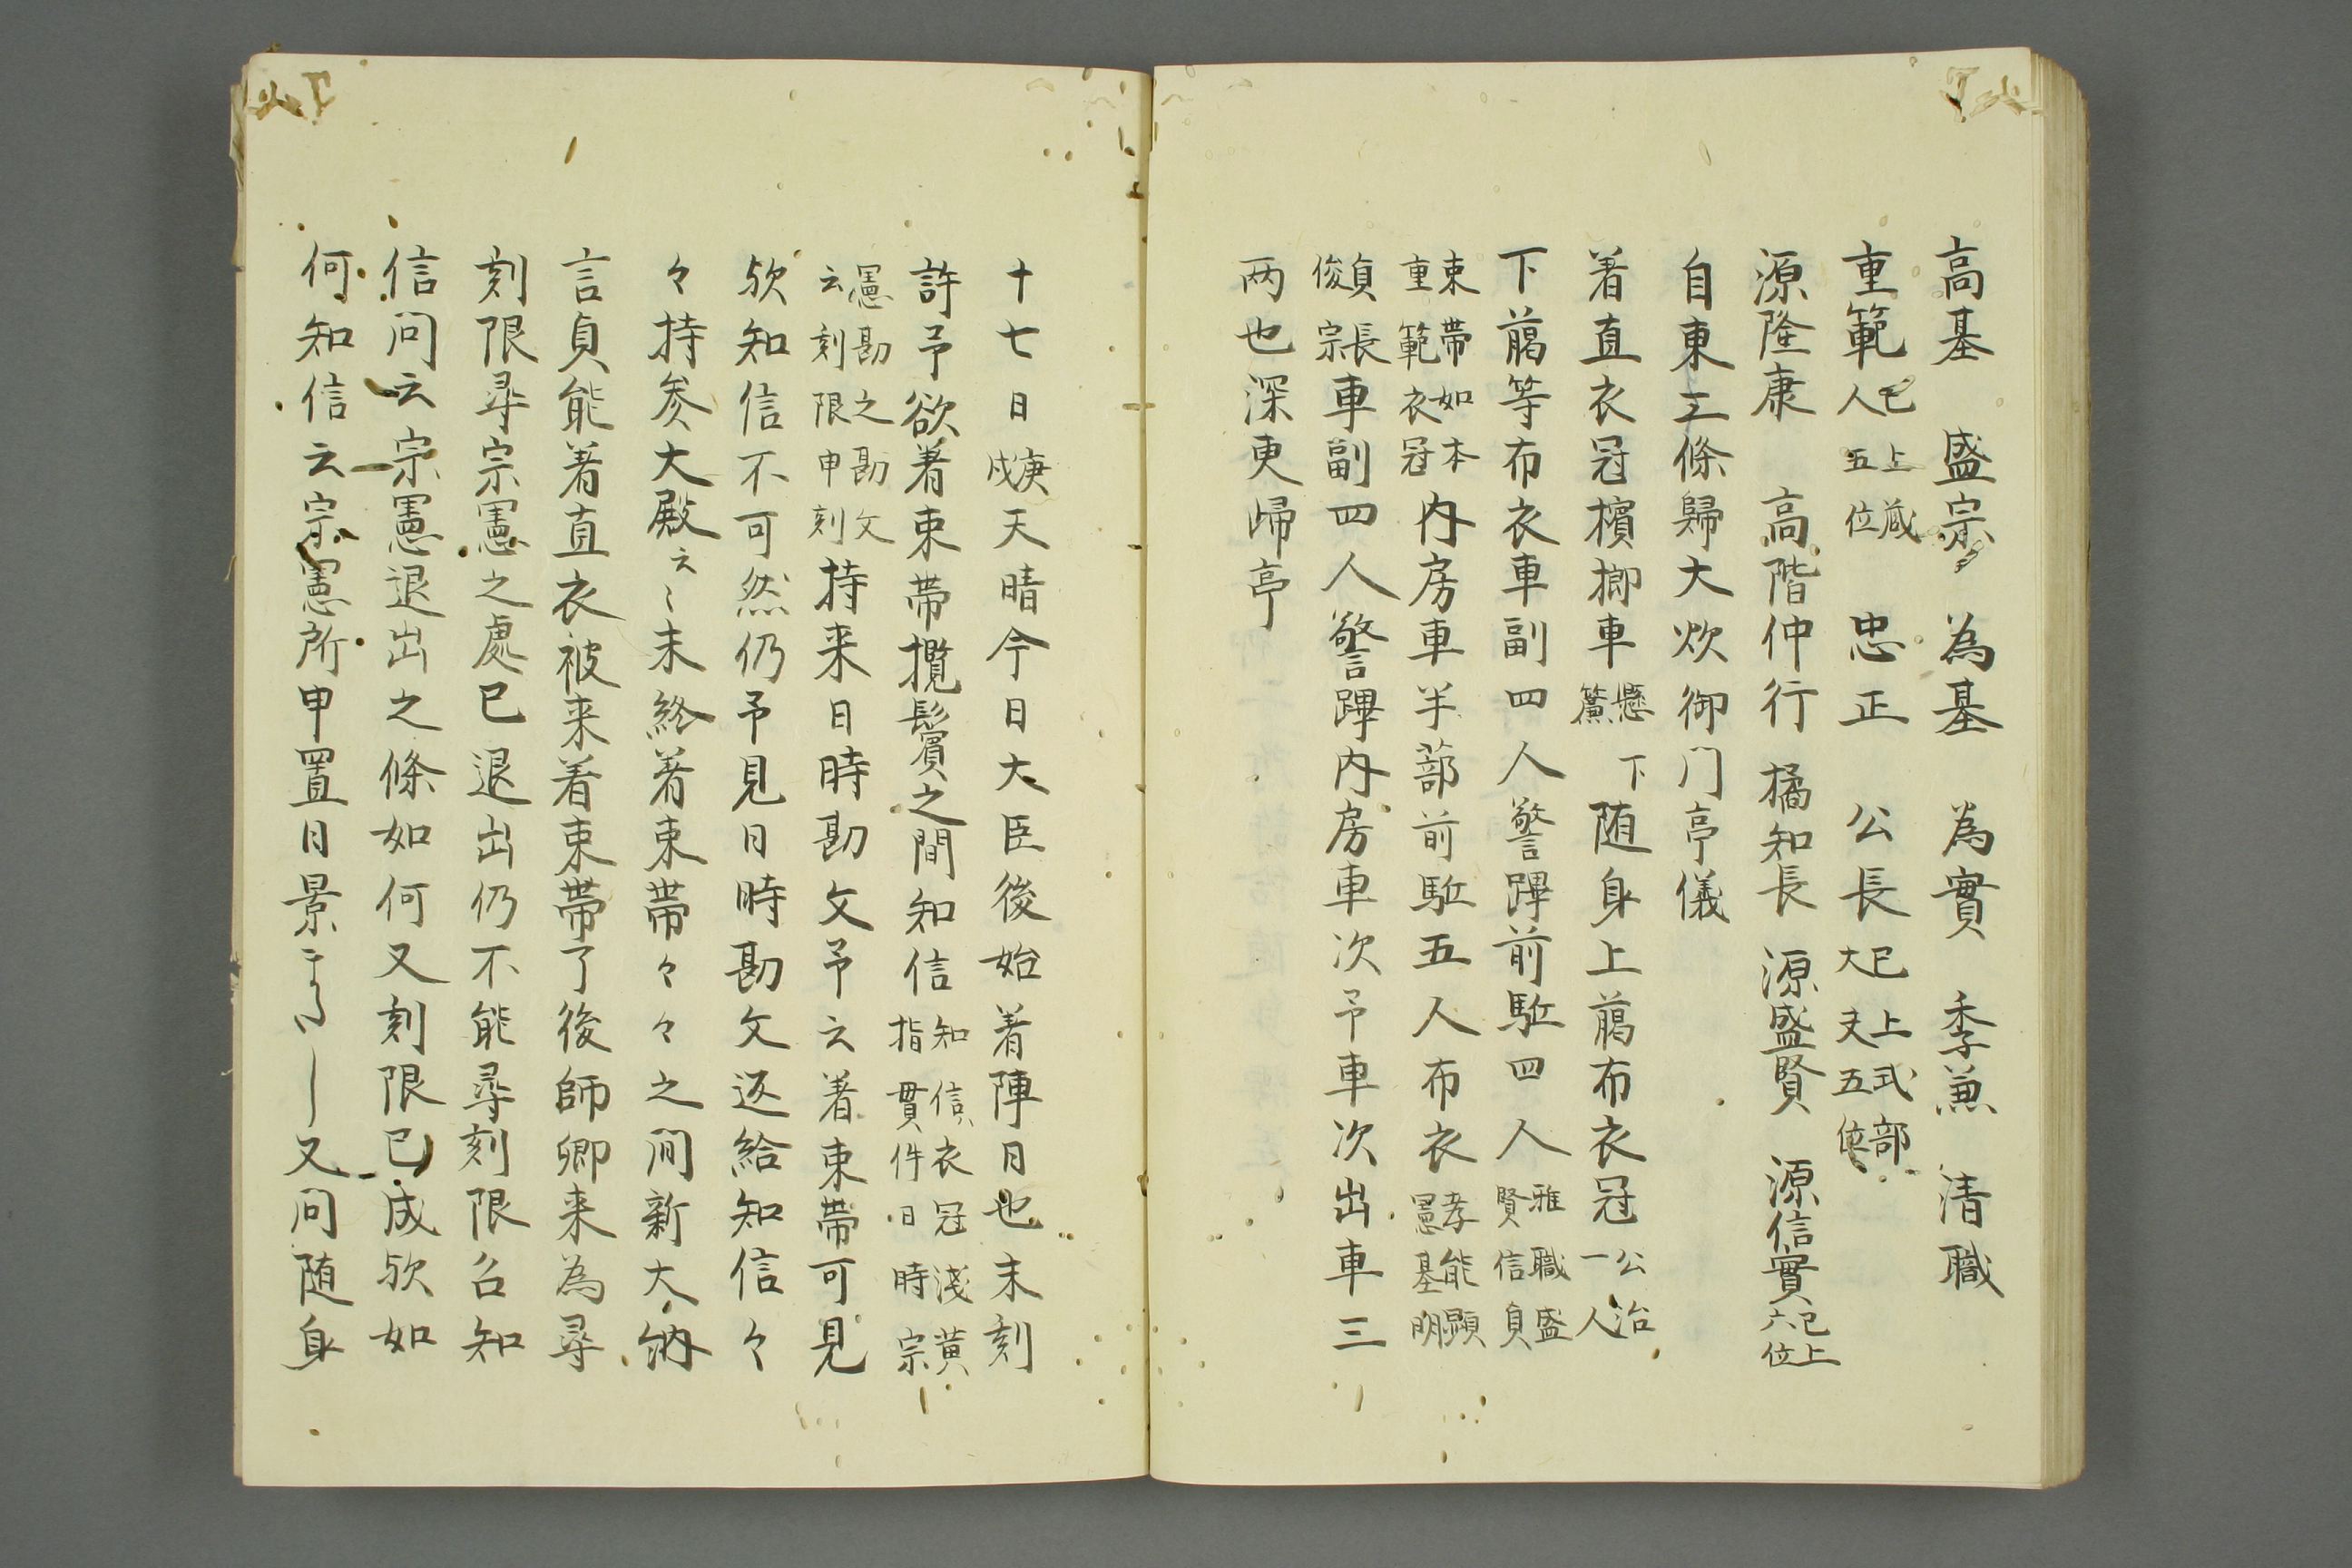 高基　盛宗　為基　為實　季兼　清職
重範已上蔵人五位　忠正　公長已上式部大夫五位
源隆康　高階仲行　橘知長　源盛賢　源信實已上六位
自東三條歸大炊御門亭儀
着直衣冠檳榔車懸下簾　随身上﨟布衣冠公治一人
下﨟等布衣車副四人警蹕前駈四人雅職盛賢信貞
束帶如本重範衣冠内房車半蔀前駈五人布衣孝能顯憲基明
貞長俊宗車副四人警蹕内房車次予車次出車三
両也深更歸亭
十七日庚戌天晴今日大臣後始着陣日也未刻
許予欲着束帶攬鬢之間知信知信衣冠淺黄指貫件日時宗
憲勘之勘文云刻限申刻持来日時勘文予云着束帶可見
欤知信不可然仍予見日時勘文返給知信々
々持参大殿云々未終着束帶々々之间新大納
言貞能着直衣被来着束帶了後師卿来為尋
刻限尋宗憲之處已退出仍不能尋刻限召知
信问云宗憲退出之條如何又刻限已成欤如
何知信云宗憲所申置日景又问随身